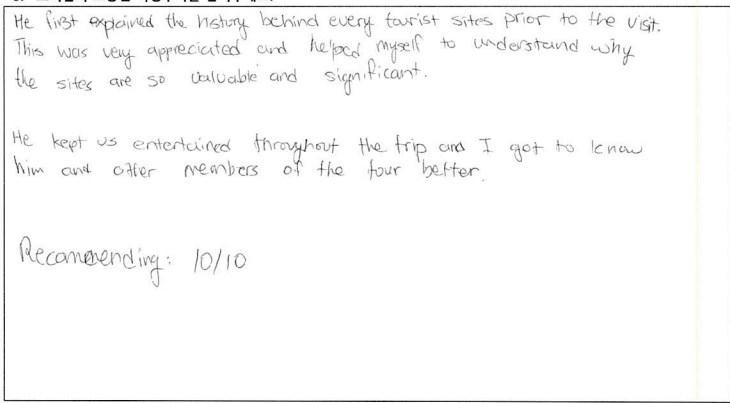 He first explained the history behind every tourist sites prior to the visit.
This was very appreciated and helped myself to understand why
the sites are so valuable and significant.
He kept us entertained throughout the trip and I got to know
him and other members of the tour better.
Recommending: 10/10